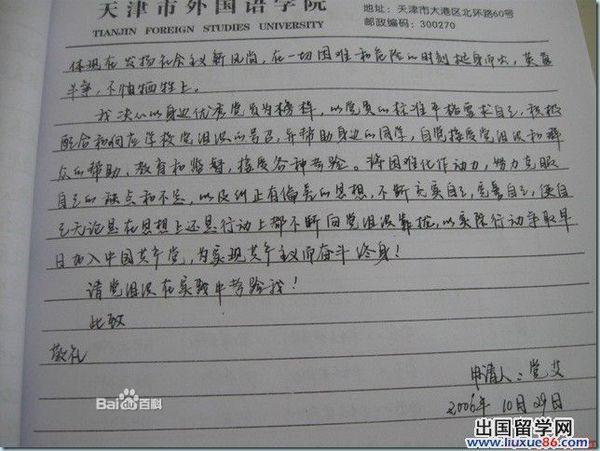 天津市外国语学院
TIANJIN FOREIGN STUDIES UNIVERSITY
地址：天津市大港区北环路60号
邮政编码：300270
体现在发扬社会主义新风尚，在一切困难和危险的时刻挺身而出，英勇
斗争，不怕牺牲上。
我决心以身边优秀党员为榜样，以党员的标准严格要求自己，积极
配合和响应学校党组织的号召，并帮助身边的同学，自觉接受党组织和群
众的帮助、教育和监督，接受各种考验。将困难化作动力，努力克服
自己的缺点和不足，以及纠正有偏差的思想，不断充实自己，完善自己，使自
己无论是在思想上还是行动上都不断向党组织靠拢，以实际行动争取早
日加入中国共产党，为实现共产主义而奋斗终身！
请党组织在实践中考验我！
此致
敬礼
申请人：党艾
2006年10月29日
Baidu百科
出国留学网
www.liuxue86.com